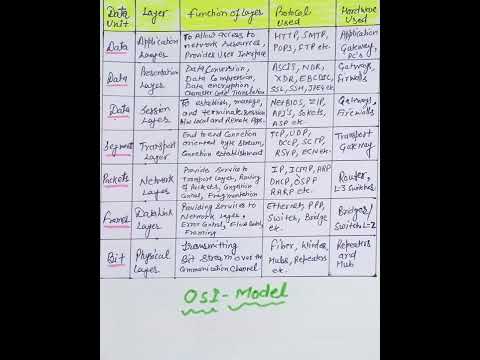 Data Unit | Layer | Function of Layer | Protocol Used | Hardware Used
Data | Application Layer | To Allow access to network resources, Provides User Interface | HTTP, SMTP, POP3, FTP etc. | Application Gateway, PC's
Data | Presentation Layer | Data Conversion, Data Compression, Data encryption, Character Code Translation | ASCII, NDR, XDR, EBCDIC, SSL, SSH, JPEG etc | Gateways, Firewalls
Data | Session Layer | To establish, manage, and terminate session b/w Local and Remote Apps. | NetBIOS, ZIP, API's, Sockets, ASP etc. | Gateways, Firewalls
Segment | Transport Layer | End to end Connection oriented byte Stream, Connection Establishment | TCP, UDP, DCCP, SCTP, RSVP, ECN etc. | Transport Gateway
Packets | Network Layer | Provide Service to Transport Layer, Routing of Packets, Congestion Control, Fragmentation | IP, ICMP, ARP DHCP, OSPF RARP etc. | Router, L-3 Switches
Frames | DataLink Layer | Providing Services to Network Layer, Error Control, Flow Control, Framing | Ethernet, PPP, Switch, Bridge etc. | Bridges/ Switch L-2
Bit | Physical Layer | Transmitting Bit Stream over the Communication Channel | Fiber, Hubs, Repeaters etc. | Repeaters and Hub
OSI - Model